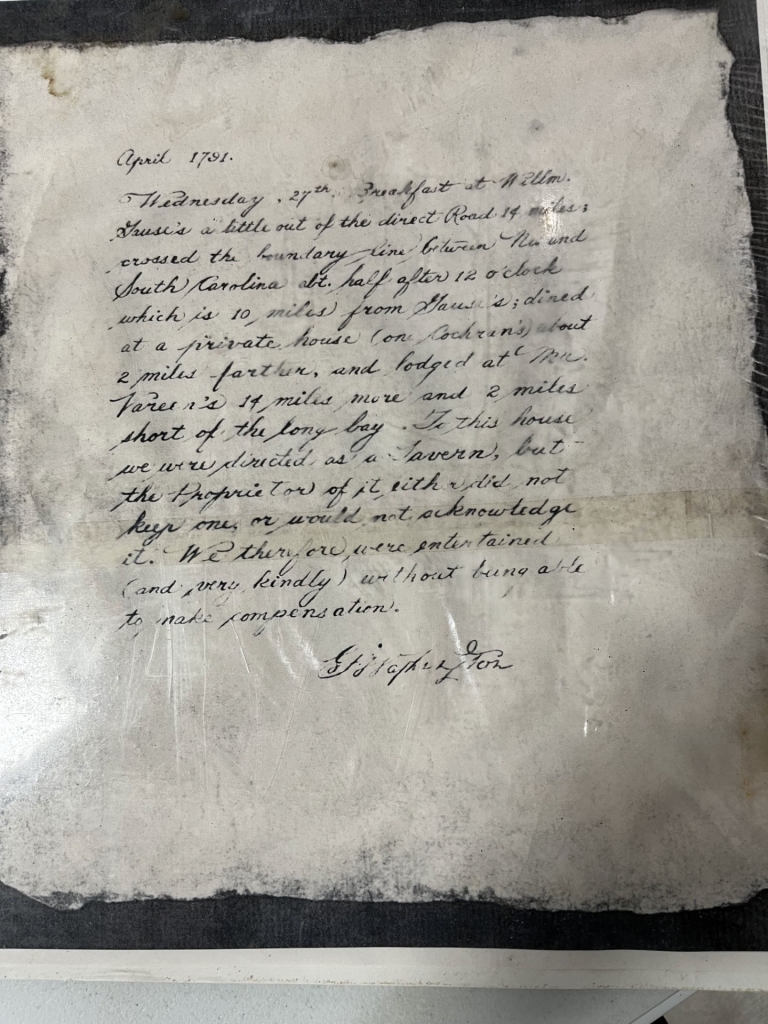 April 1791.
Wednesday. 27th. Breakfast at Willm.
Gause's a little out of the direct Road 14 miles;
crossed the boundary line between No. and
South Carolina abt. half after 12 o'clock
which is 10 miles from Gause's; dined
at a private house (one Cochran's) about
2 miles farther, and lodged at Mr.
Vareen's 14 miles more and 2 miles
short of the long bay. To this house
we were directed as a Tavern, but
the Proprietor of it either did not
keep one, or would not acknowledge
it. We therefore were entertained
(and very kindly) without being able
to make compensation.
G Washington